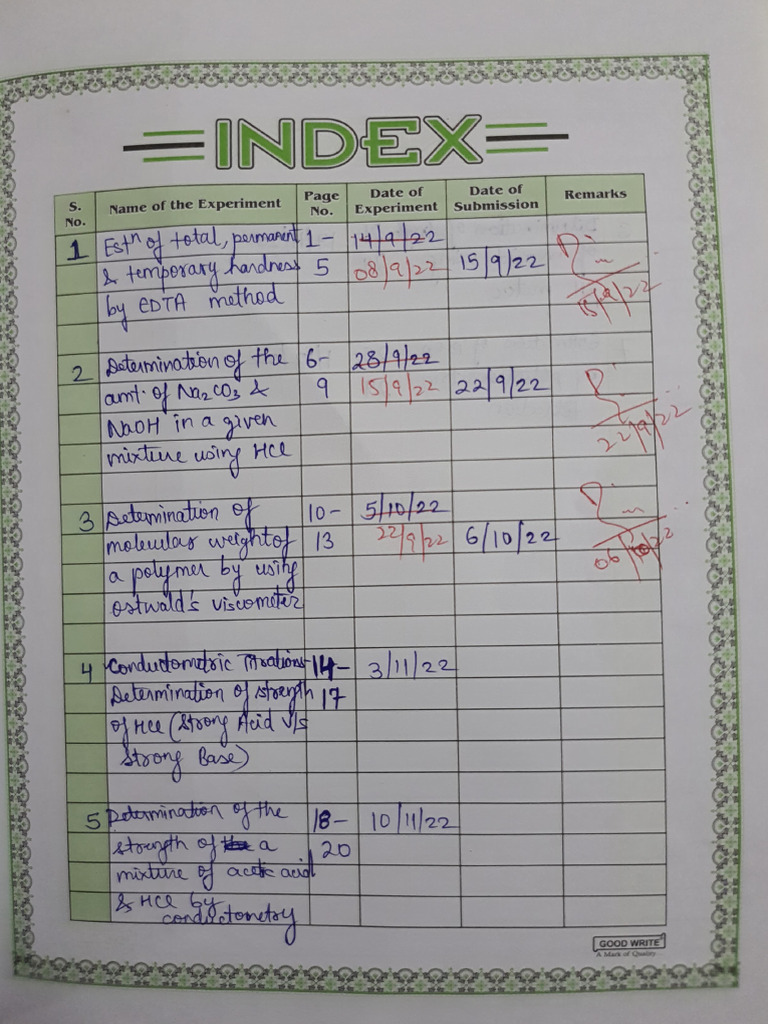 INDEX
S. No. Name of the Experiment Page No. Date of Experiment Date of Submission Remarks
1 Estⁿ of total, permanent 1- 14/9/22
& temporary hardness 5 08/9/22 15/9/22
by EDTA method 15/9/22
2 Determination of the 6- 28/9/22
amt. of Na₂CO₃ & 9 15/9/22 22/9/22
NaOH in a given 22/9/22
mixture using HCl
3 Determination of 10- 5/10/22
molecular weight of 13 22/9/22 6/10/22
a polymer by using 06/10/22
Ostwald's viscometer
4 Conductometric Titrations- 14- 3/11/22
Determination of strength 17
of HCl (Strong Acid v/s
Strong Base)
5 Determination of the 18- 10/11/22
strength of a 20
mixture of acetic acid
& HCl by
conductometry
GOOD WRITE
A Mark of Quality